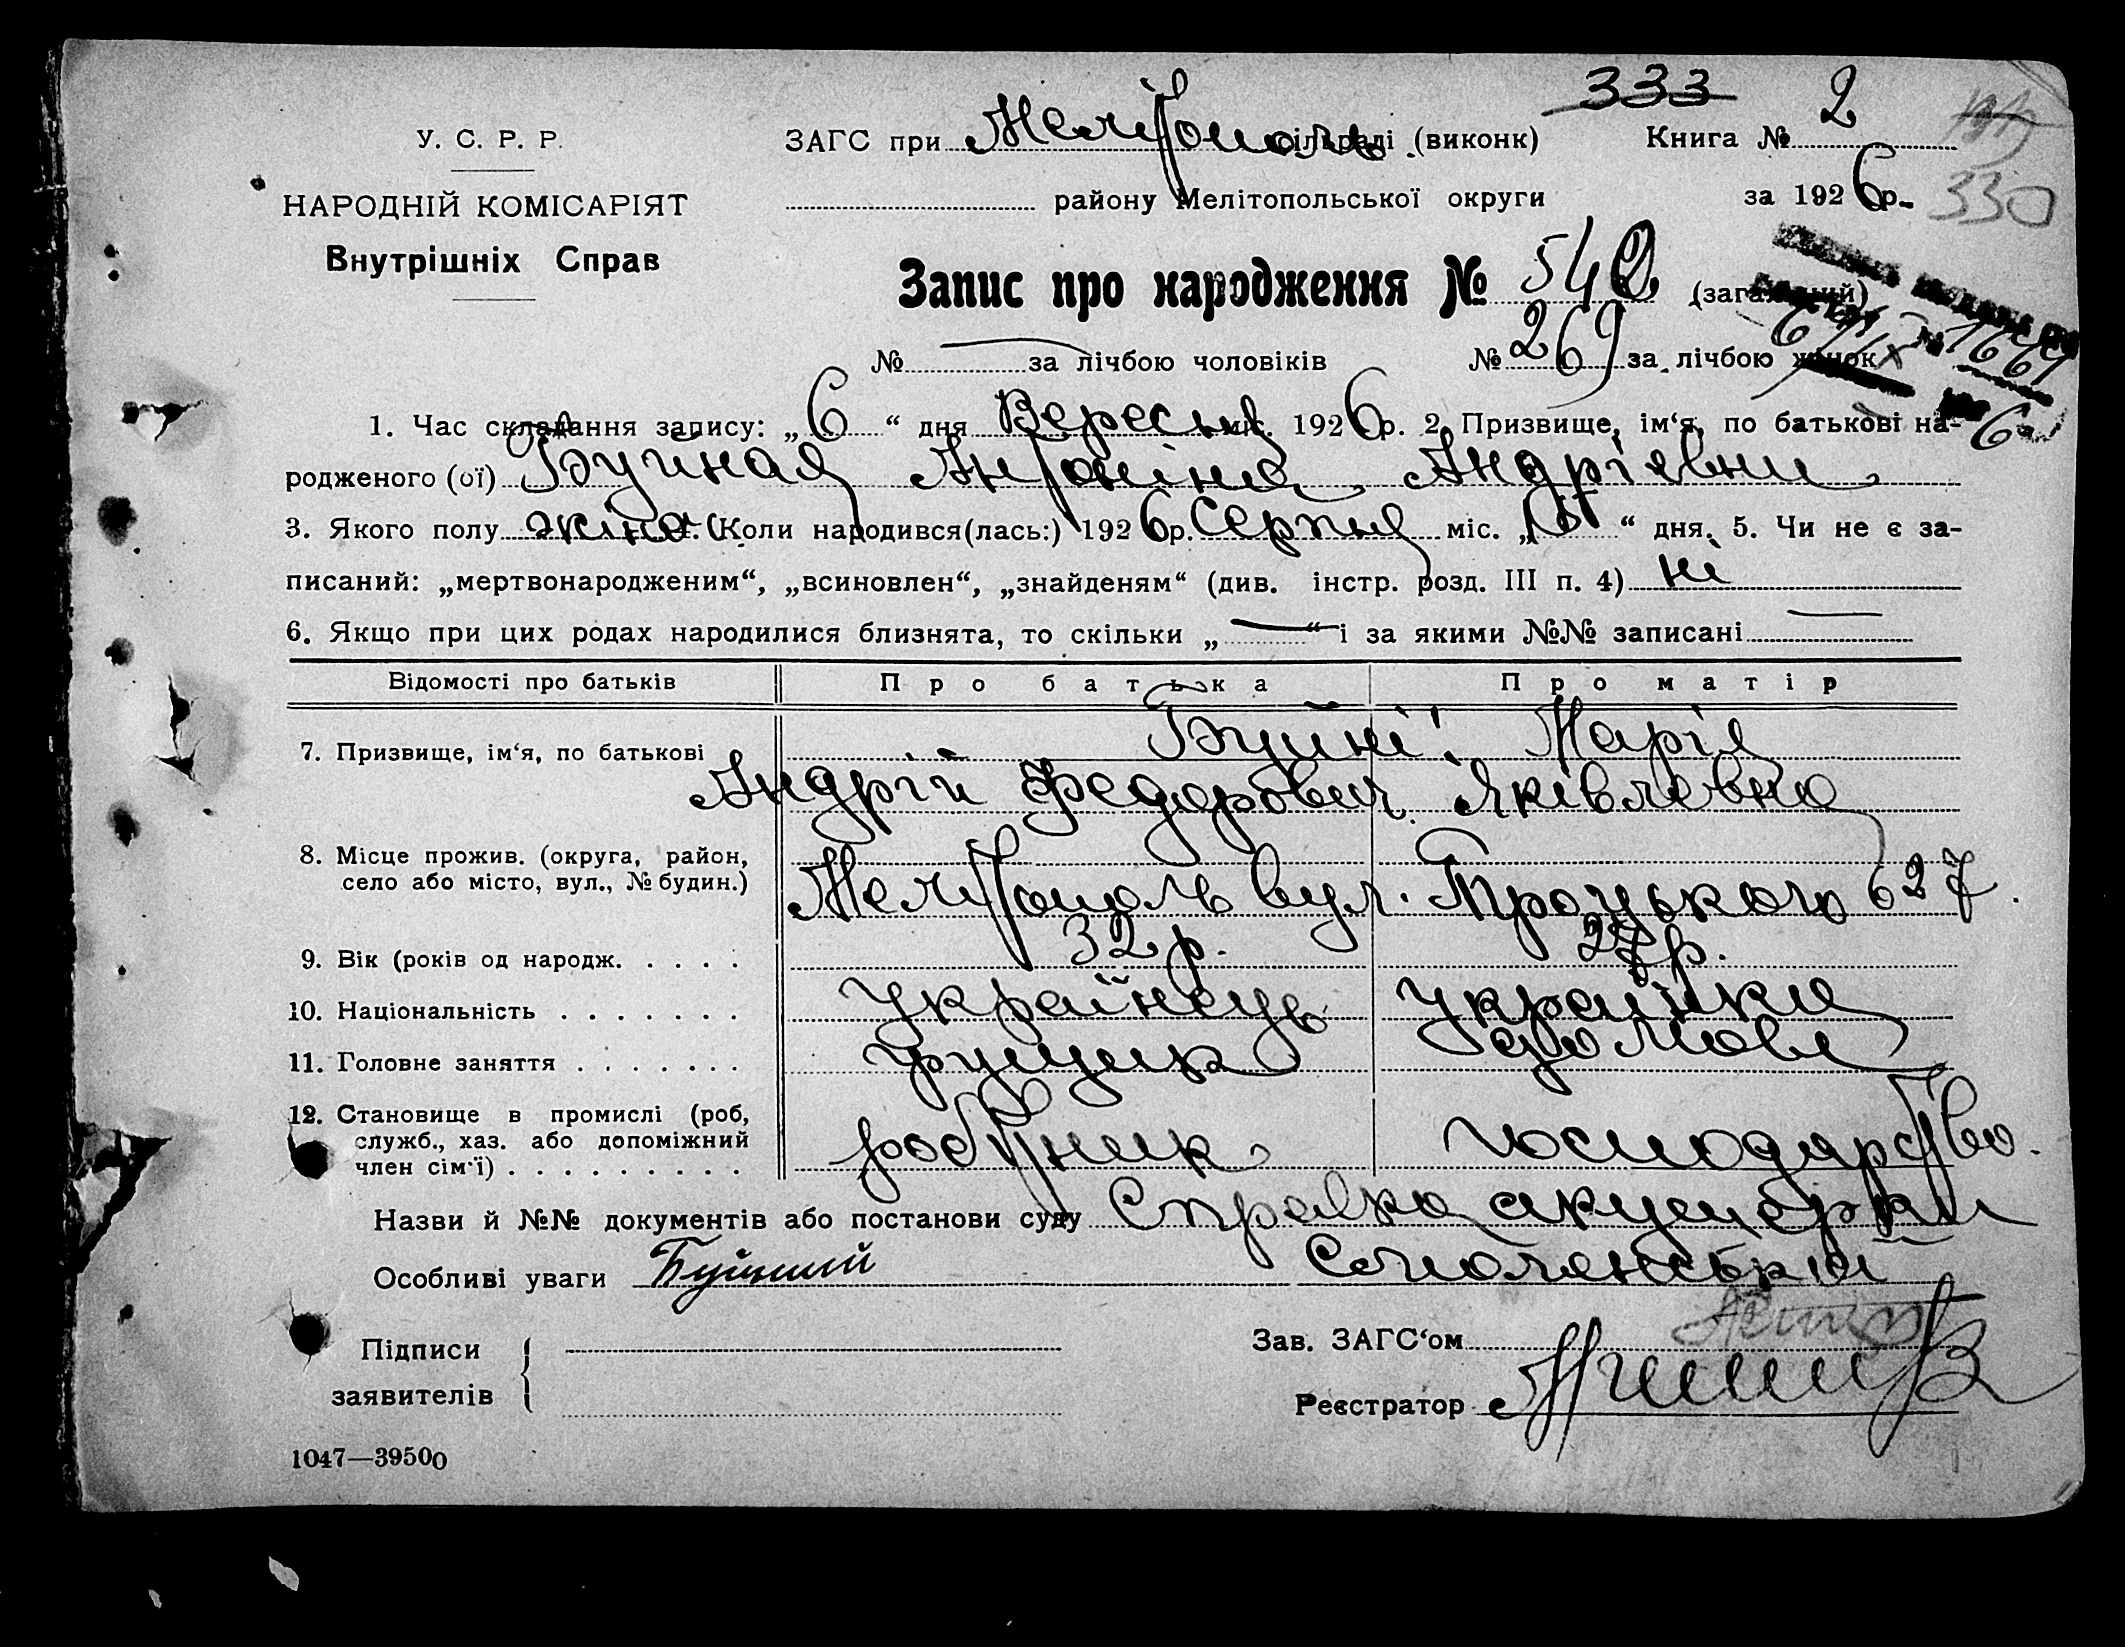 333
У. С. Р. Р.
ЗАГС при Мелітополь сільраді (виконк) Книга № 2
НАРОДНІЙ КОМІСАРІЯТ
району Мелітопольської округи за 1926 р. 330
Внутрішніх Справ
Запис про народження № 542 (загальний)
№ за лічбою чоловіків № 269 за лічбою жінок
1. Час складання запису: „6“ дня Вересня міс. 1926 р. 2. Призвище, ім‘я, по батькові на-
родженого (ої) Буйная Антоніна Андріевни
3. Якого полу жіноч. Коли народився(лась:) 1926 р. Серпня міс. „ “ дня. 5. Чи не є за-
писаний: „мертвонародженим“, „всиновлен“, „знайденям“ (див. інстр. розд. III п. 4) ні
6. Якщо при цих родах народилися близнята, то скільки „ “ і за якими №№ записані
Відомості про батьків Про батька Про матір
7. Призвище, ім‘я, по батькові Буйні Марія
Андрій Федорович Яківлевна
8. Місце прожив. (округа, район,
село або місто, вул., № будин.) Мелітополь вул. Троцького 627
9. Вік (років од народж. . . . . 32 р. 27 р.
10. Національність . . . . . . . українець українка
11. Головне заняття . . . . . . . домове
12. Становище в промислі (роб,
служб., хаз. або допоміжний
член сім‘ї) . . . . . . . . . робітник господарство.
Назви й №№ документів або постанови суду Справка акушерки
Особливі уваги Буйний Смоленській
Підписи
заявителів
Зав. ЗАГС‘ом
Реєстратор
1047—39500